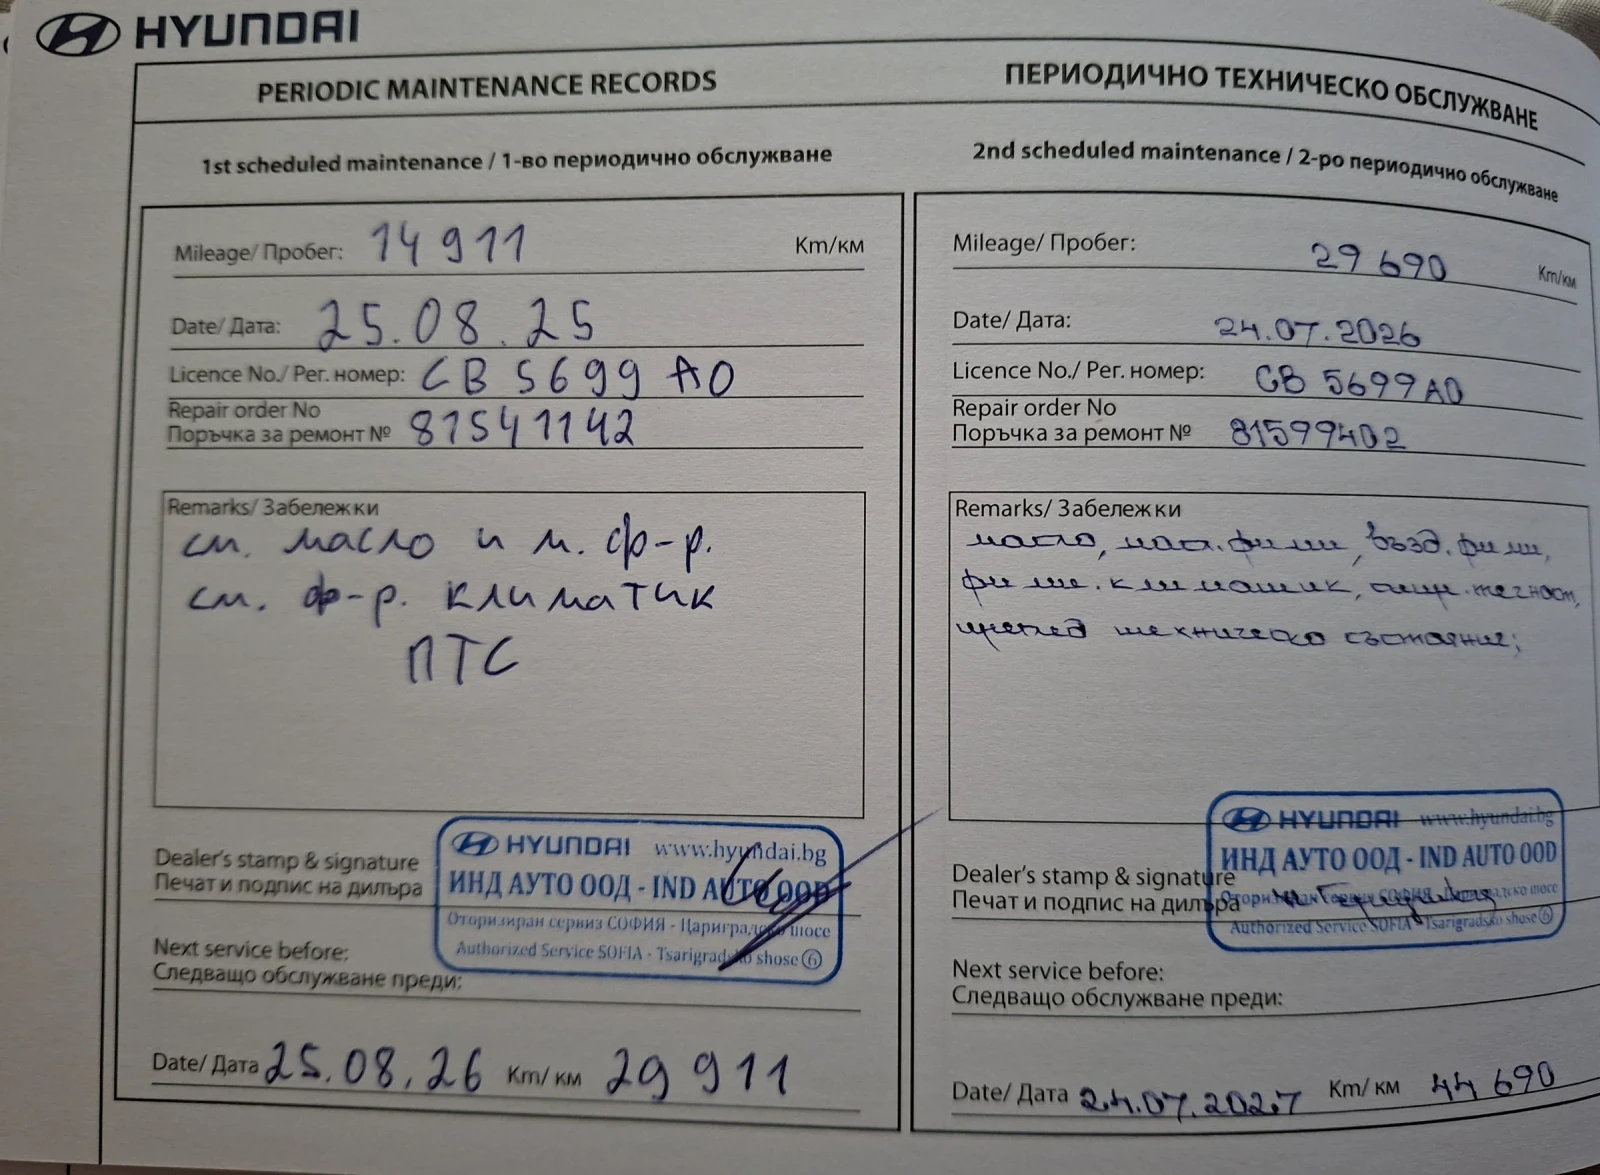 HYUNDAI
PERIODIC MAINTENANCE RECORDS
ПЕРИОДИЧНО ТЕХНИЧЕСКО ОБСЛУЖВАНЕ
1st scheduled maintenance / 1-во периодично обслужване
Mileage/ Пробег: 14 911 Km/км
Date/ Дата: 25.08.25
Licence No./ Рег. номер: СВ 5699 АО
Repair order No
Поръчка за ремонт № 81541142
Remarks/ Забележки
см. масло и м. ф-р.
см. ф-р. климатик
ПТС
Dealer's stamp & signature
Печат и подпис на дилъра
HYUNDAI www.hyundai.bg
ИНД АУТО ООД - IND AUTO OOD
Оторизиран сервиз СОФИЯ - Цариградско шосе
Authorized Service SOFIA - Tsarigradsko shose 6
Next service before:
Следващо обслужване преди:
Date/ Дата 25.08.26 Km/ км 29 911
2nd scheduled maintenance / 2-ро периодично обслужване
Mileage/ Пробег: 29 690 Km/км
Date/ Дата: 24.07.2026
Licence No./ Рег. номер: СВ 5699 АО
Repair order No
Поръчка за ремонт № 81599402
Remarks/ Забележки
масло, мас. филт, възд. филт,
филт. климатик, спир. течност,
преглед техническо състояние;
Dealer's stamp & signature
Печат и подпис на дилъра
HYUNDAI www.hyundai.bg
ИНД АУТО ООД - IND AUTO OOD
СОФИЯ - Цариградско шосе
Authorized Service SOFIA - Tsarigradsko shose 6
Next service before:
Следващо обслужване преди:
Date/ Дата 24.07.2027 Km/ км 44 690